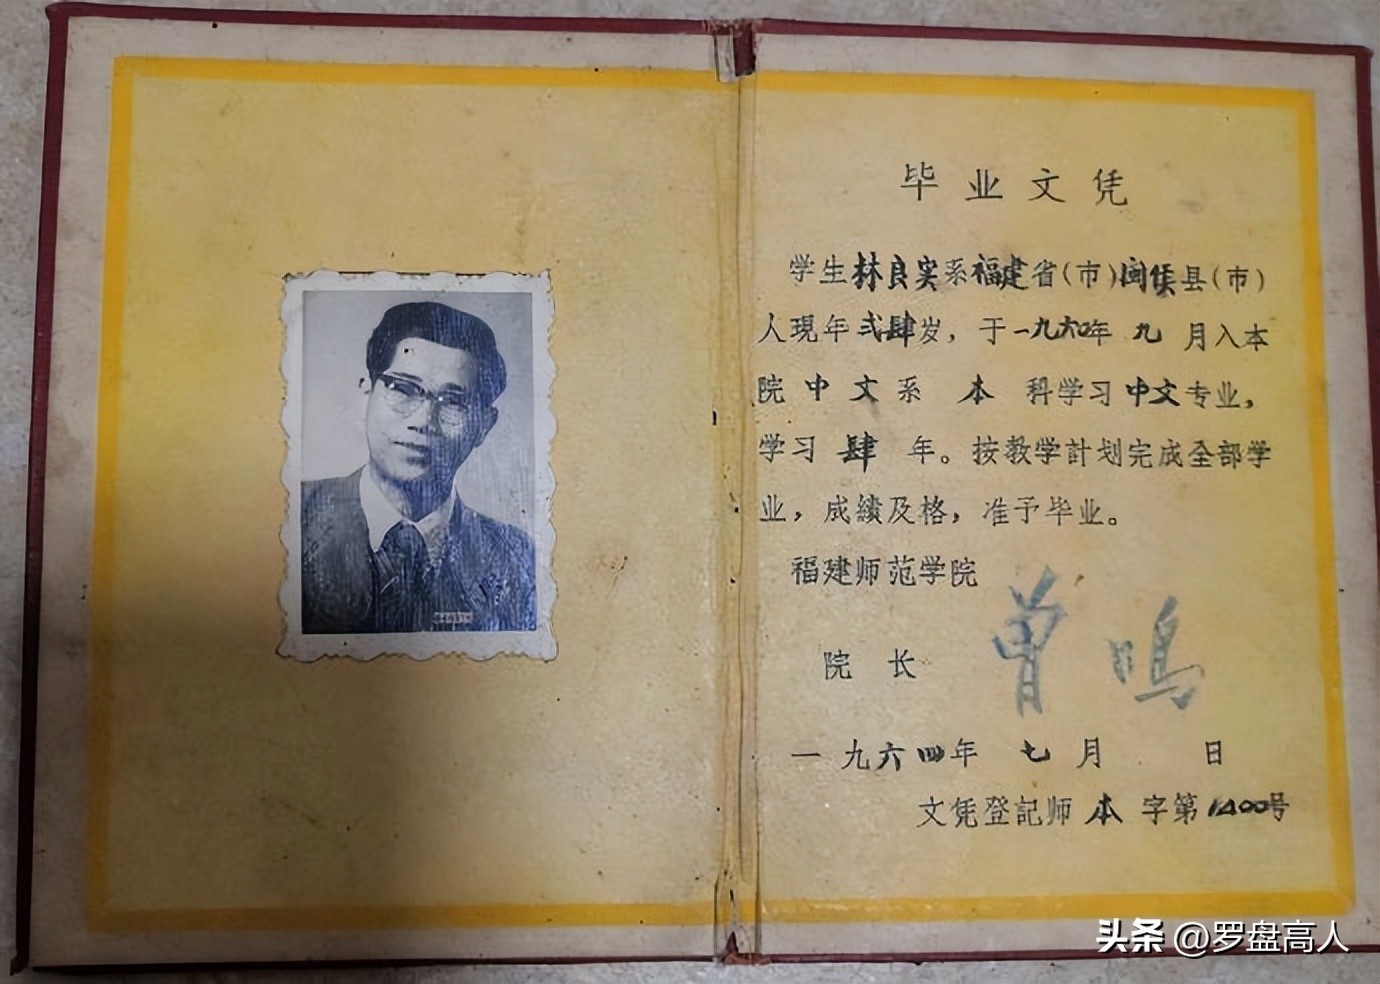 毕业文凭
学生林良实系福建省(市)闽侯县(市)
人現年弍肆岁，于一九六〇年九月入本
院中文系本科学习中文专业，
学习肆年。按教学計划完成全部学
业，成績及格，准予毕业。
福建师范学院
院长 曾鸣
一九六四年七月 日
文凭登記师本字第1400号
头条 @罗盘高人